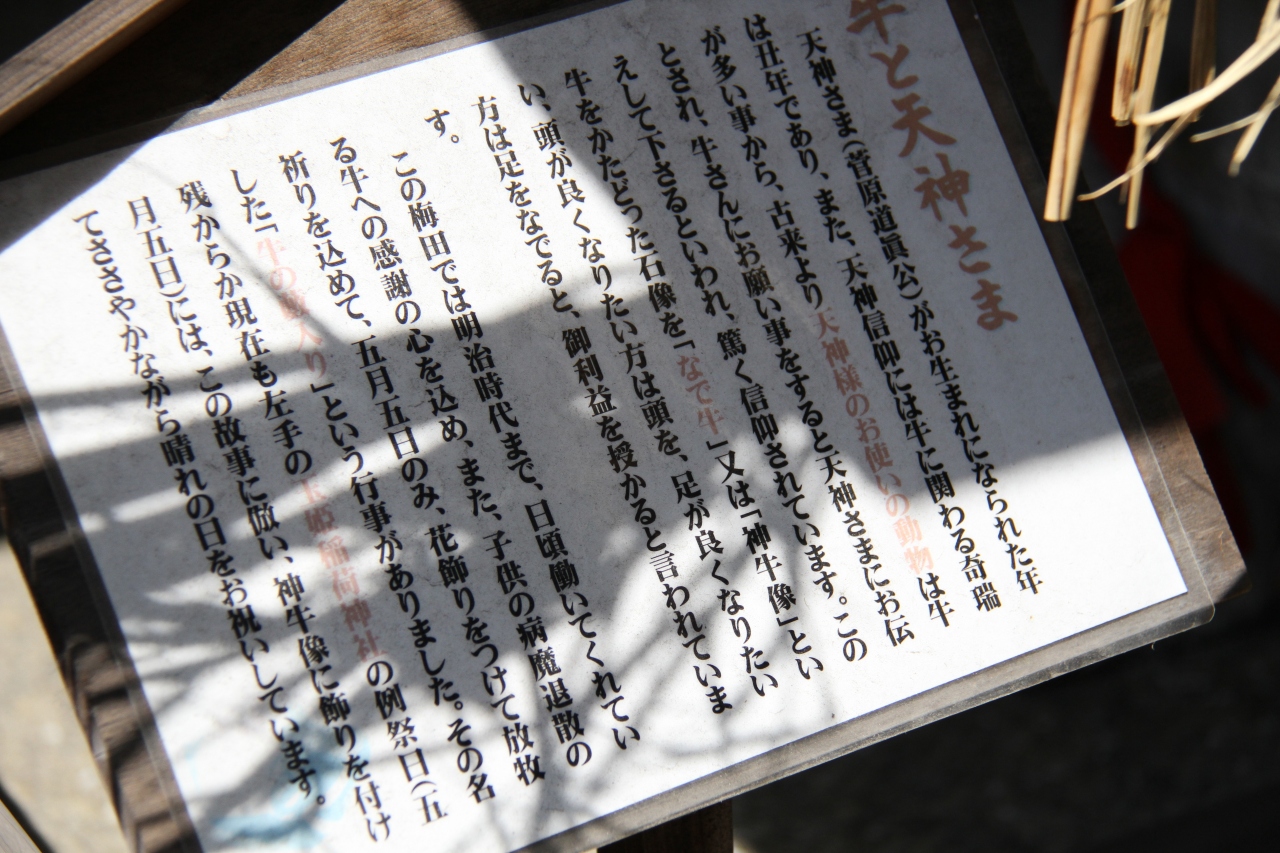 牛と天神さま
天神さま(菅原道眞公)がお生まれになられた年
は丑年であり、また、天神信仰には牛に関わる奇瑞
が多い事から、古来より天神様のお使いの動物は牛
とされ、牛さんにお願い事をすると天神さまにお伝
えして下さるといわれ、篤く信仰されています。この
牛をかたどった石像を「なで牛」又は「神牛像」とい
い、頭が良くなりたい方は頭を、足が良くなりたい
方は足をなでると、御利益を授かると言われていま
す。
この梅田では明治時代まで、日頃働いてくれてい
る牛への感謝の心を込め、また、子供の病魔退散の
祈りを込めて、五月五日のみ、花飾りをつけて放牧
した「牛の藪入り」という行事がありました。その名
残からか現在も左手の玉姫稲荷神社の例祭日(五
月五日)には、この故事に倣い、神牛像に飾りを付け
てささやかながら晴れの日をお祝いしています。